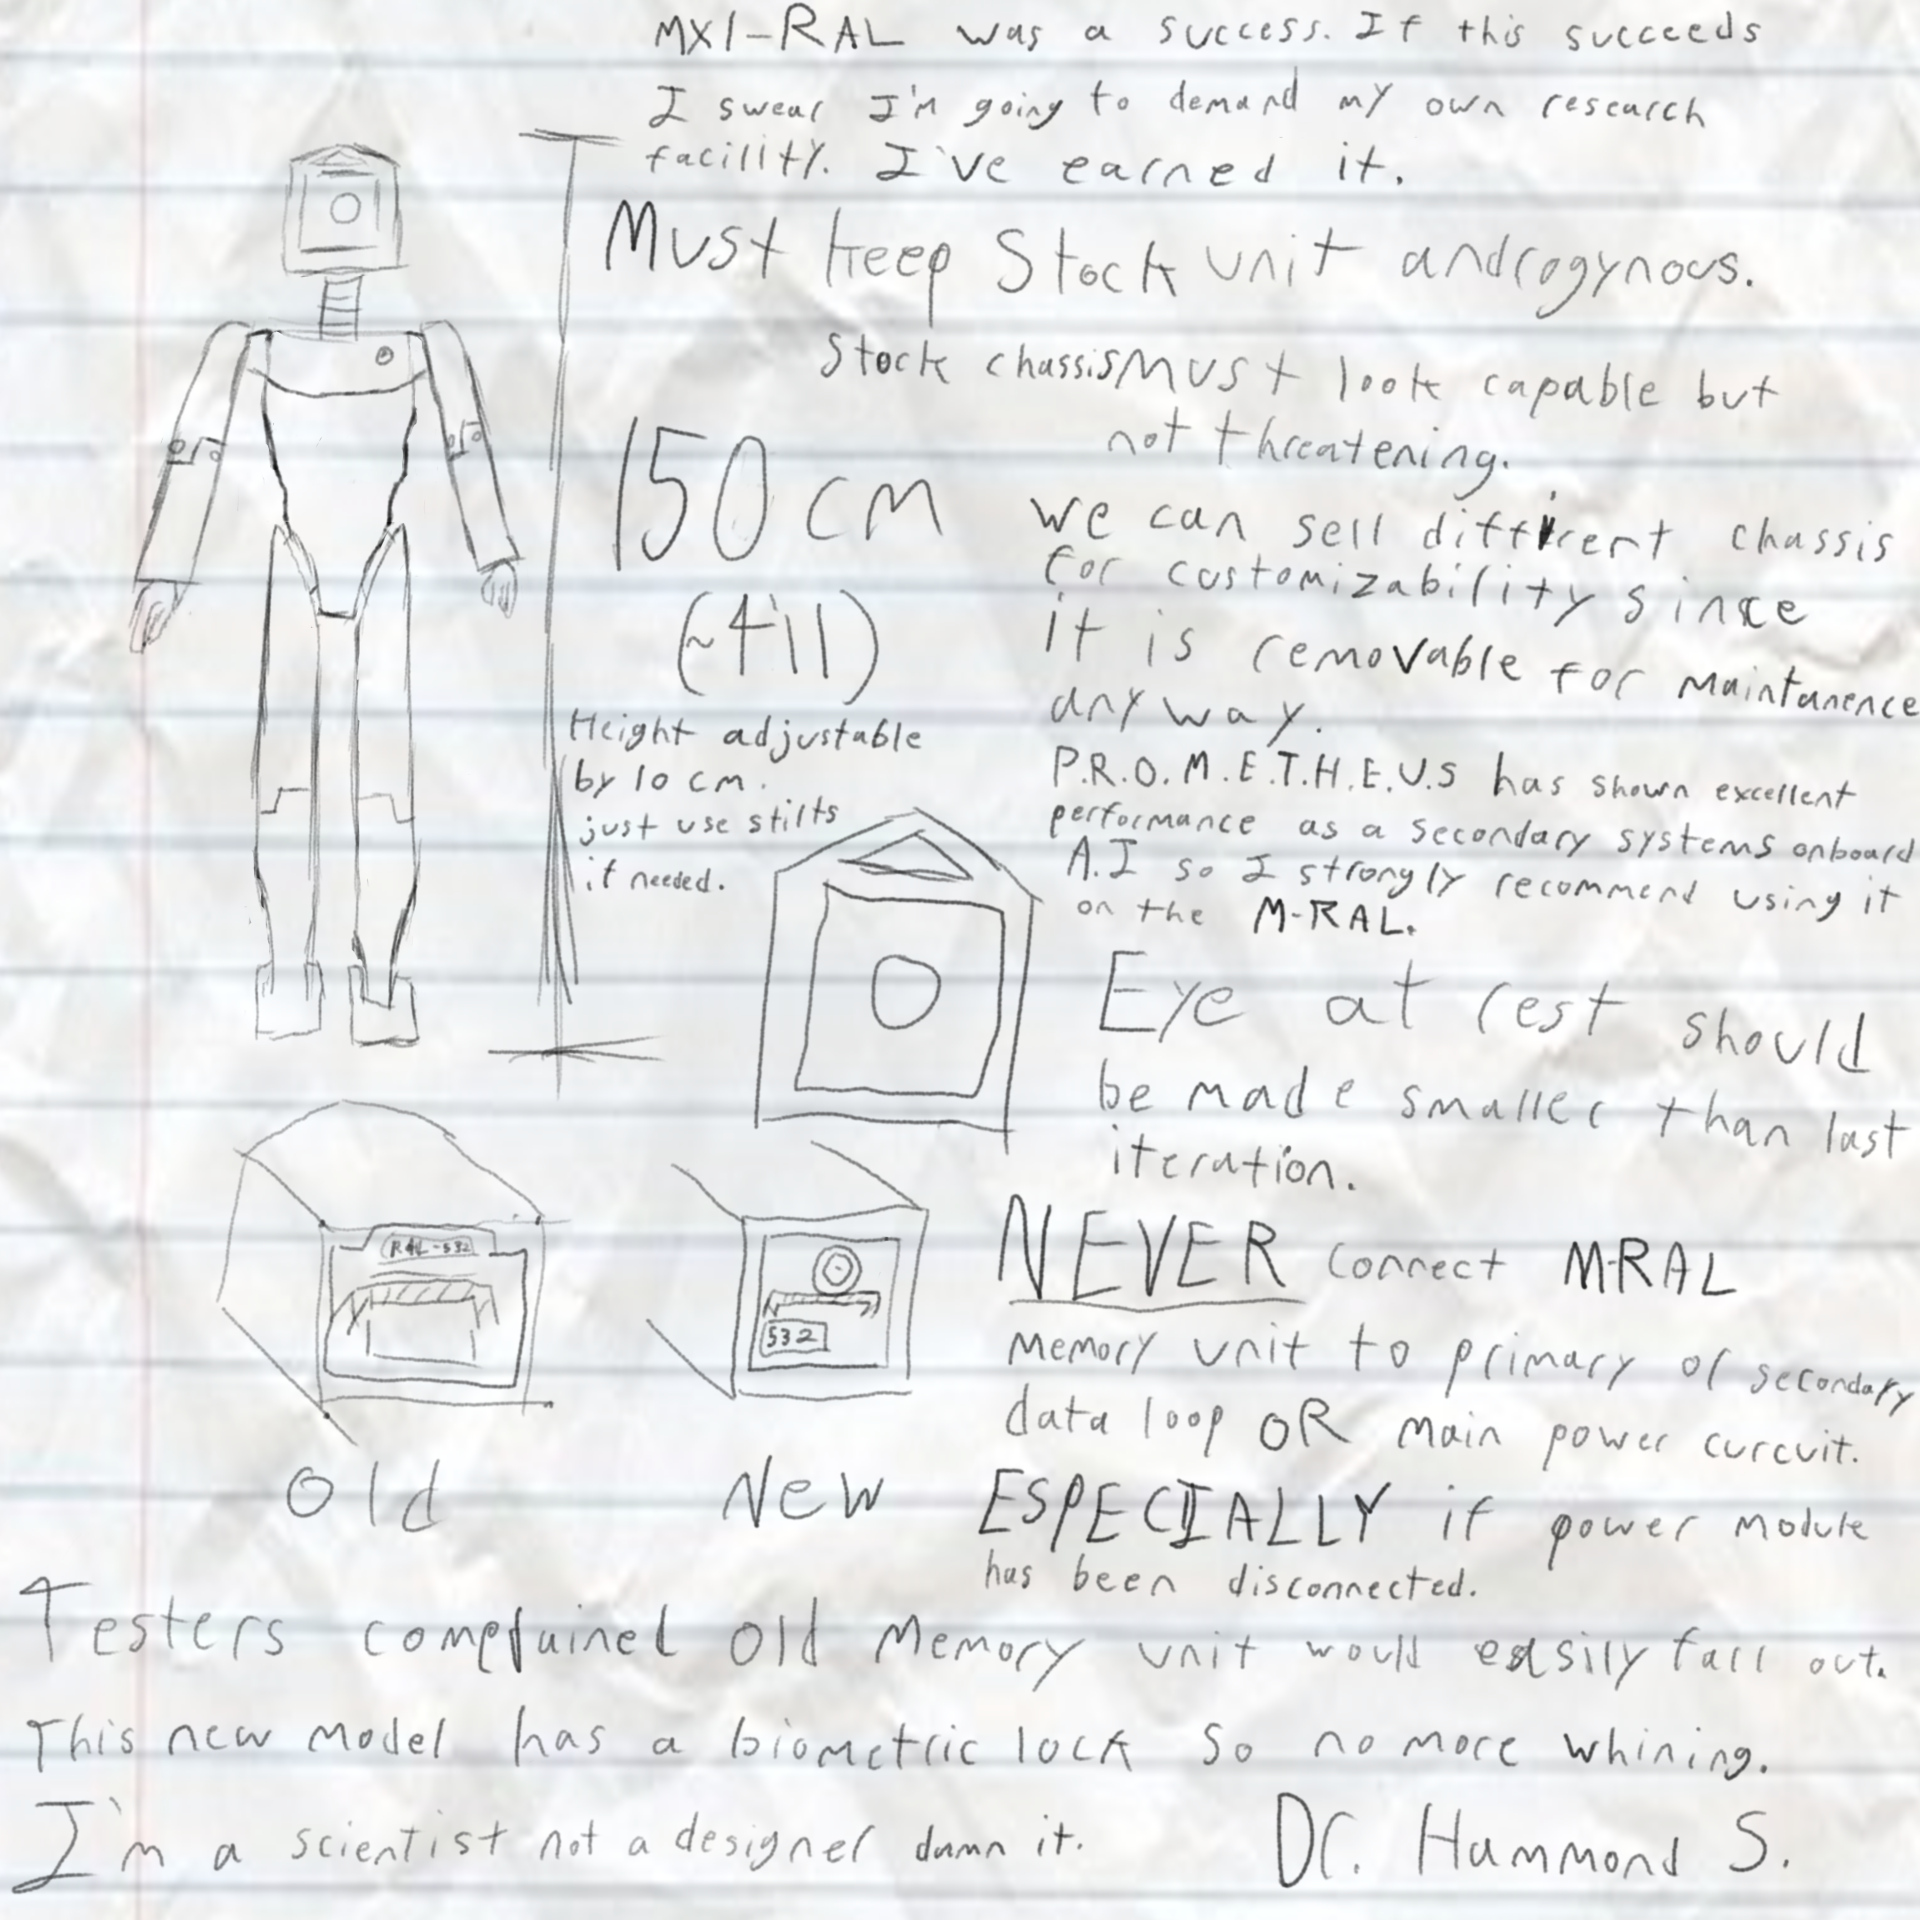 MX1-RAL was a success. If this succeeds
I swear I'm going to demand my own research
facility. I've earned it.
Must keep Stock unit androgynous.
Stock chassis must look capable but
not threatening.
150 cm
(~4'11)
Height adjustable
by 10 cm.
just use stilts
if needed.
we can sell different chassis
for customizability since
it is removable for maintanence
anyway.
P.R.O.M.E.T.H.E.U.S has shown excellent
performance as a secondary systems onboard
A.I so I strongly recommend using it
on the M-RAL.
Eye at rest should
be made smaller than last
iteration.
RAL-532
532
Old
New
NEVER connect M-RAL
memory unit to primary or secondary
data loop OR main power curcuit.
ESPECIALLY if power module
has been disconnected.
Testers complained old memory unit would easily fall out.
This new model has a biometric lock so no more whining.
I'm a scientist not a designer damn it.
Dr. Hammond S.